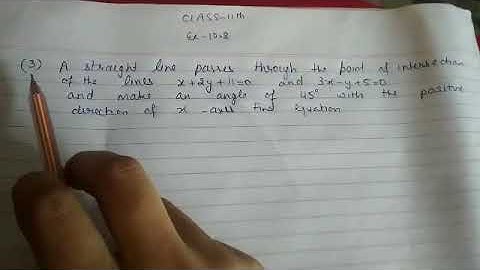 CLASS-11th
Ex-10.8
(3) A straight line passes through the point of intersection
of the lines x+2y+11=0 and 3x-y+5=0
and make an angle of 45° with the positive
direction of x -axis find Equation